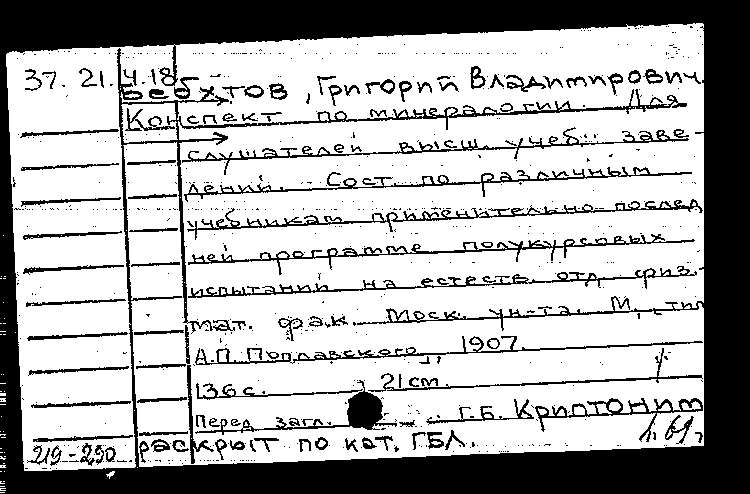 37. 21. 4.18
Бебхтов, Григорий Владимирович.
Конспект по минералогии. Для
слушателей высш. учебн. заве-
дений. Сост. по различным
учебникам применительно послед
ней программе полукурсовых
испытаний на естеств. отд. физ.-
мат. фак. Моск. ун-та. М., тип
А.П. Поплавского, 1907.
136 с. 21 см.
Перед загл. : Г.Б. Криптоним
219-290 раскрыт по кат. ГБЛ.